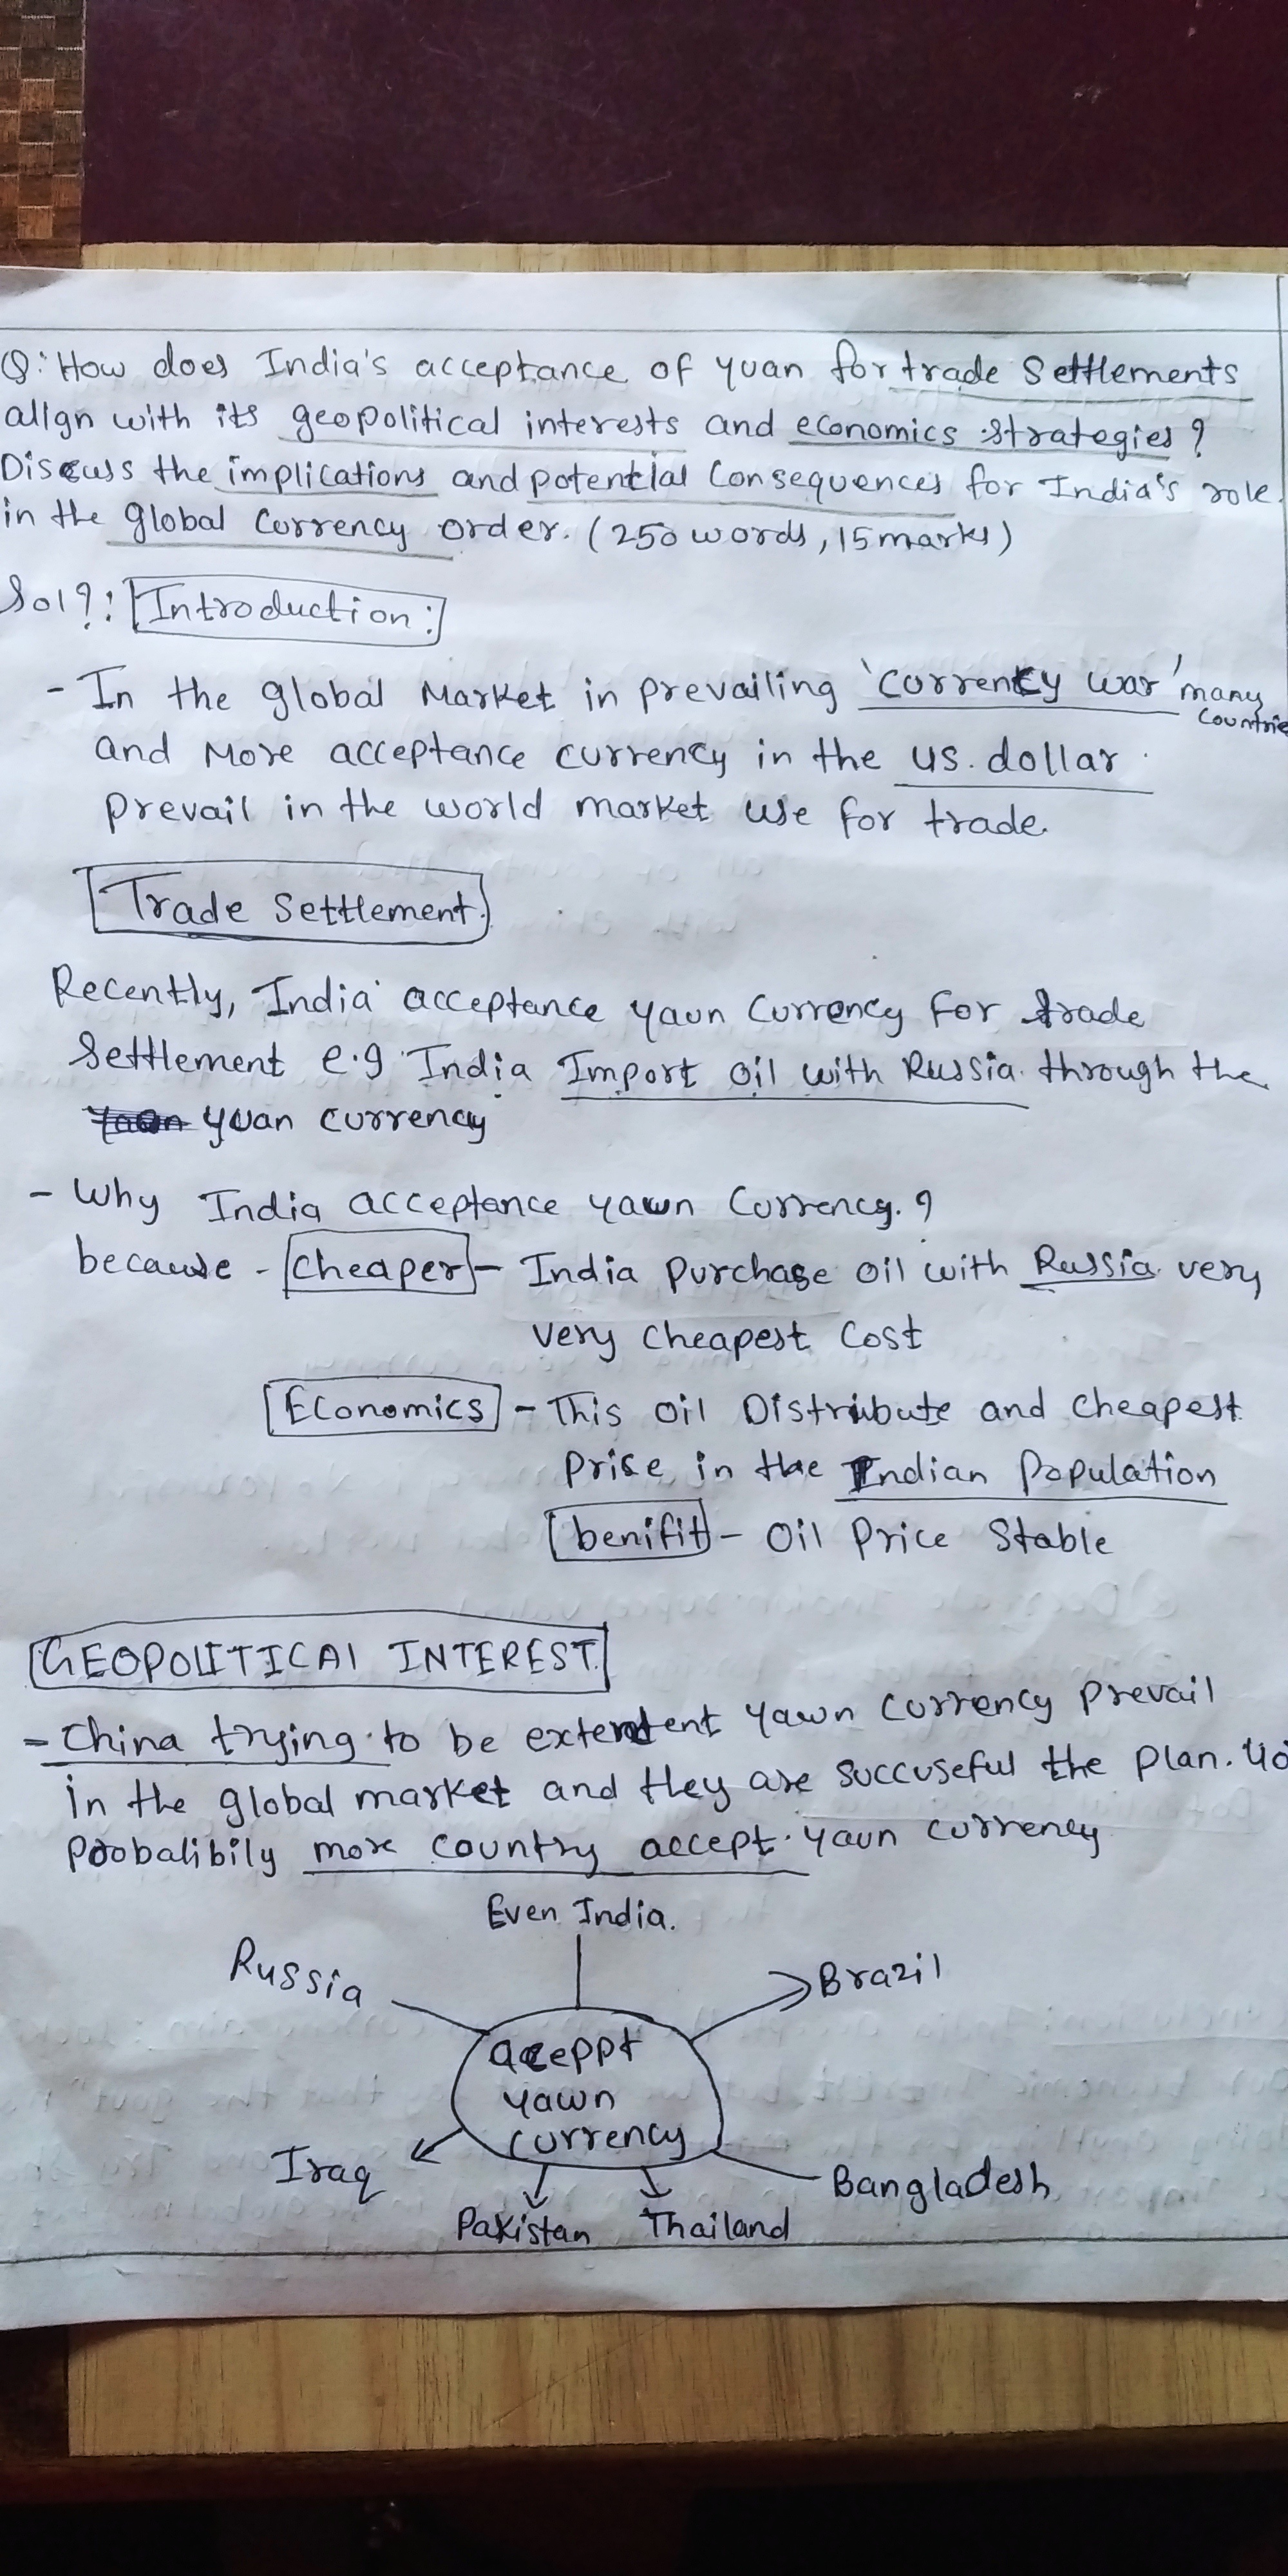 Q: How does India's acceptance of yuan for trade Settlements
align with its geopolitical interests and economics strategies?
Discuss the implications and potential Consequences for India's role
in the global Currency order. (250 words, 15 marks)
Introduction:
- In the global Market in prevailing 'Currency war' many
Countrie
and More acceptance currency in the us. dollar
prevail in the world market use for trade.
Trade Settlement.
Recently, India acceptance yaun Currency For trade
Settlement e.g India Import oil with Russia through the
yuan currency
- Why India acceptance yawn Currency.?
because - Cheaper - India Purchase oil with Russia very
very Cheapest Cost
Economics - This oil Distribute and Cheapest
Prise in the Indian Population
benifit - Oil Price Stable
GEOPOLITICAL INTEREST
- China trying to be extendent yawn currency prevail
in the global market and they are succuseful the plan.
Probalibily more country accept yaun currency
Even India.
Russia
Brazil
aceppt
yawn
currency
Iraq
Bangladesh
Pakistan Thailand